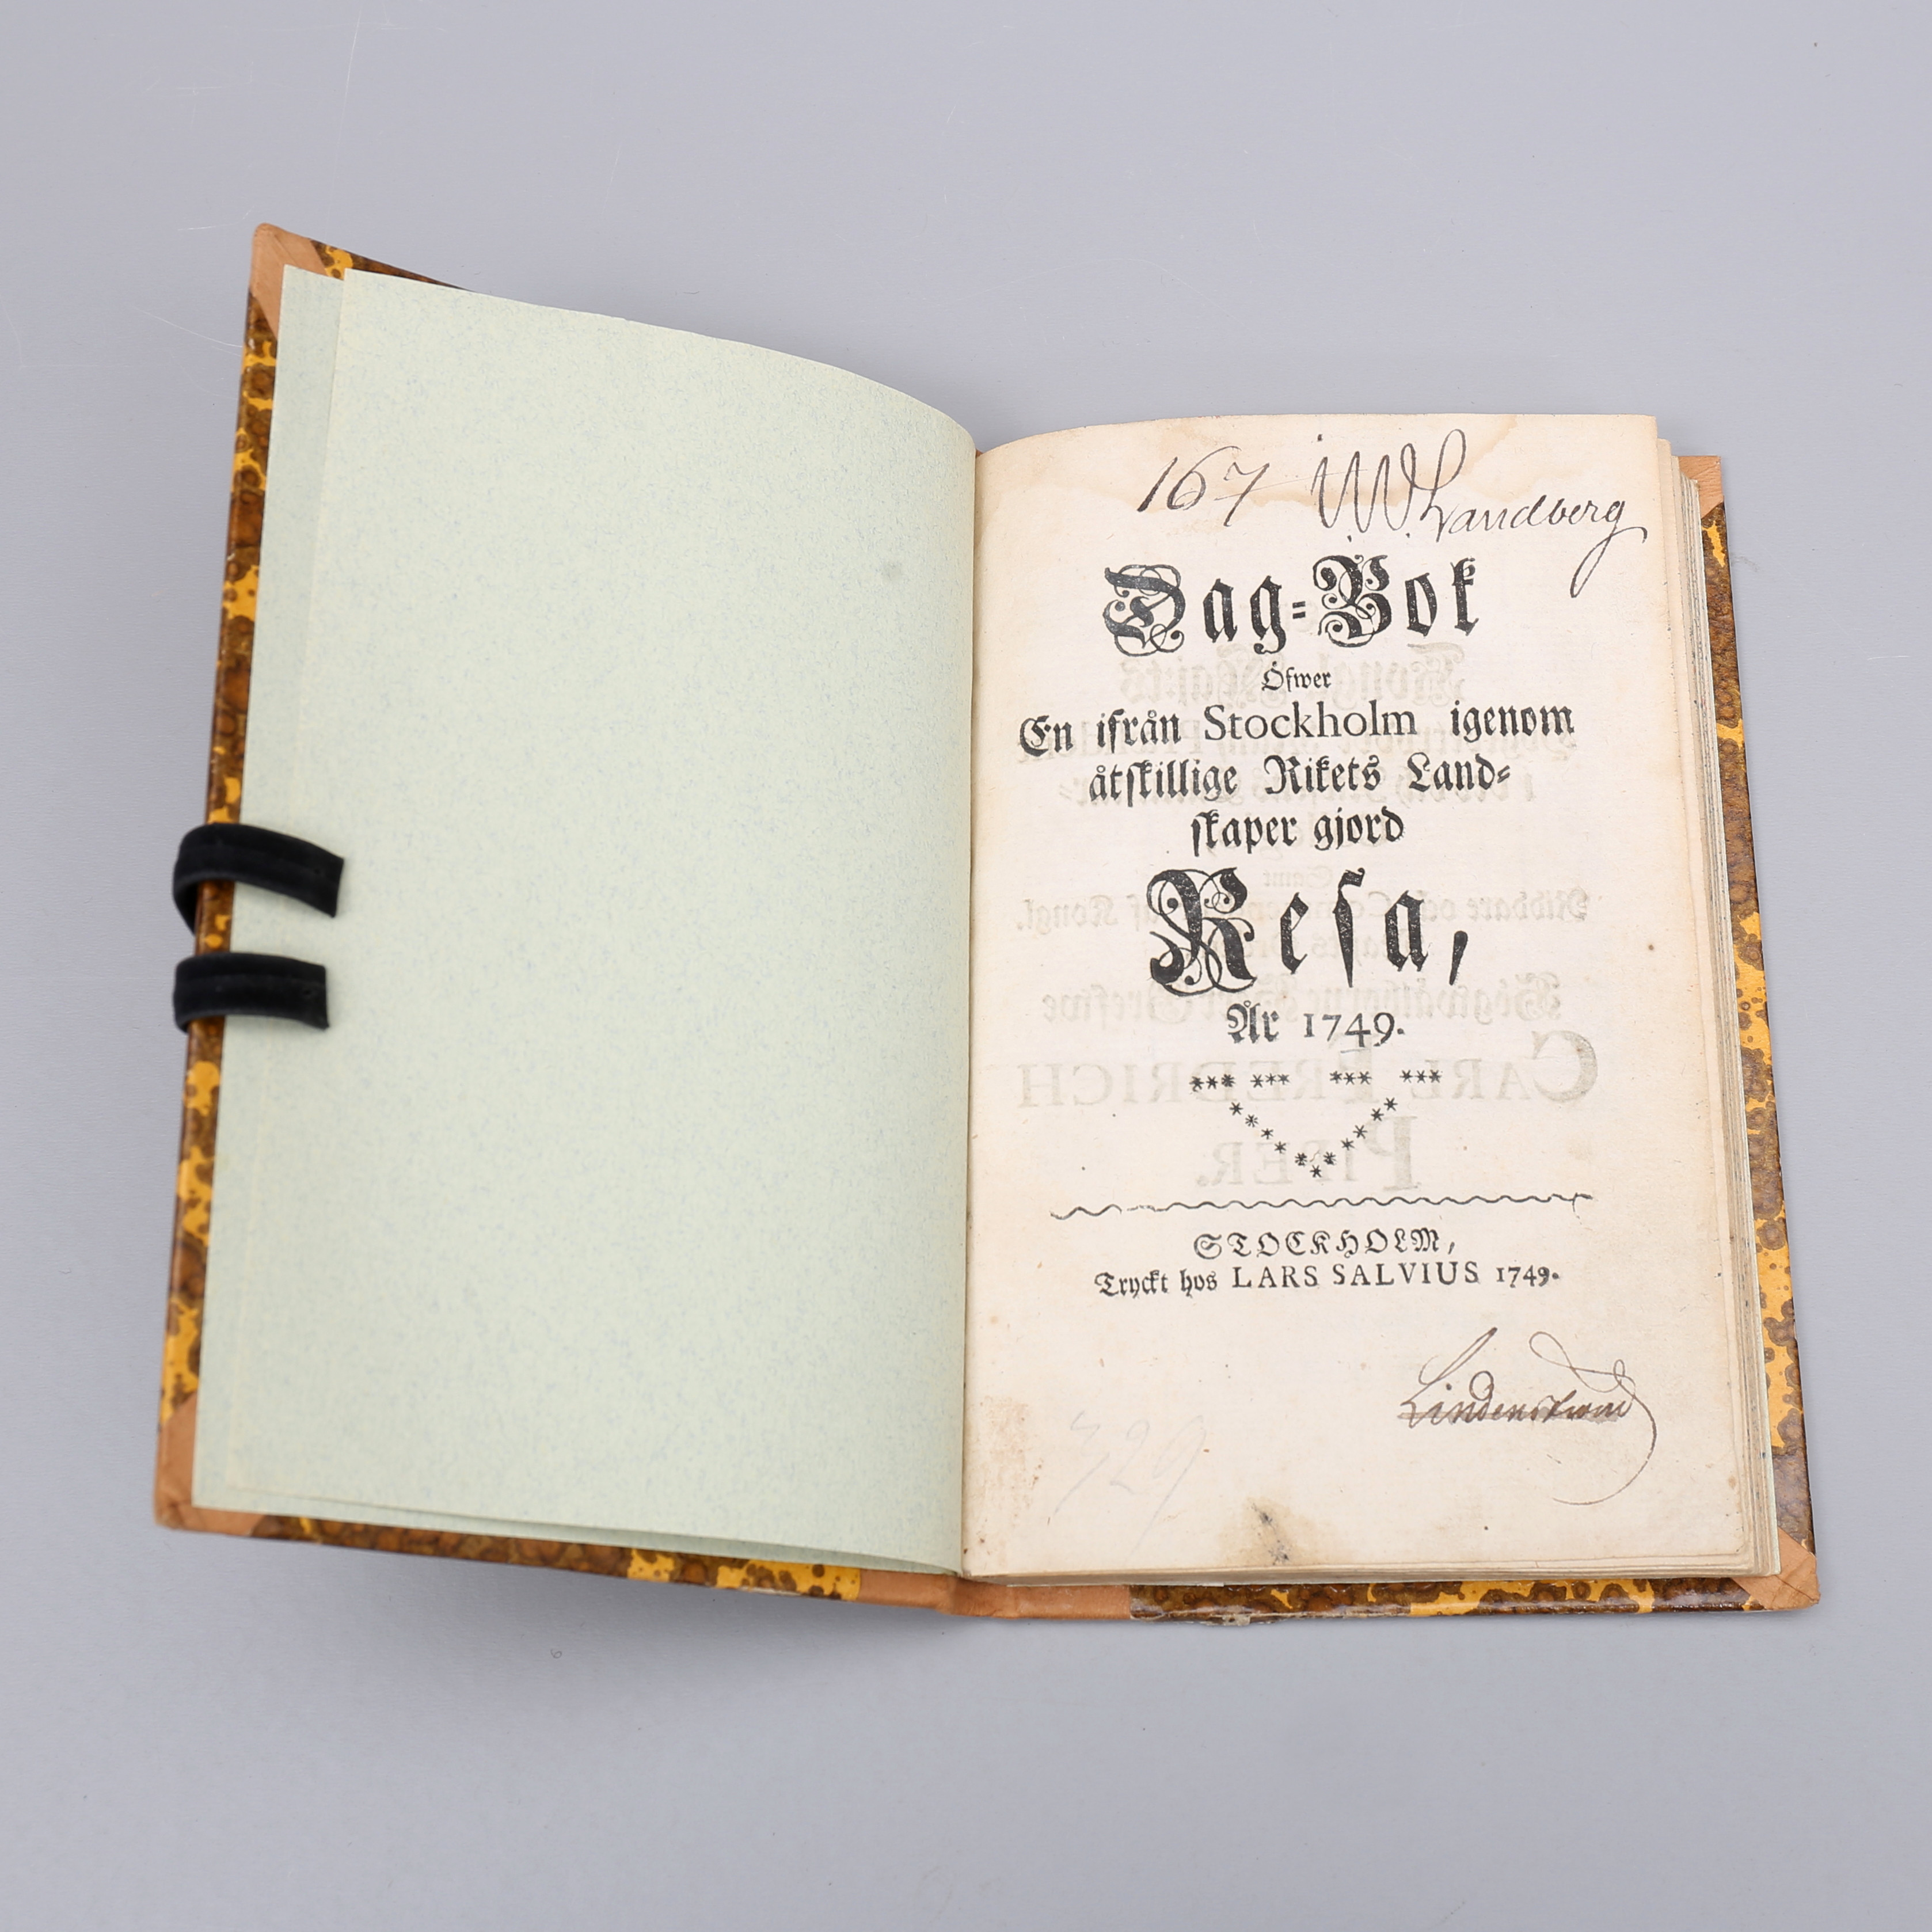 167 W Landberg
Dag=Bok
Öfwer
En ifrån Stockholm igenom
åtſkillige Rikets Land=
ſkaper gjord
Reſa,
År 1749.
*** *** *** ***
STOCKHOLM,
Tryckt hos LARS SALVIUS 1749.
329
CARL FREDRICH
PIPER.